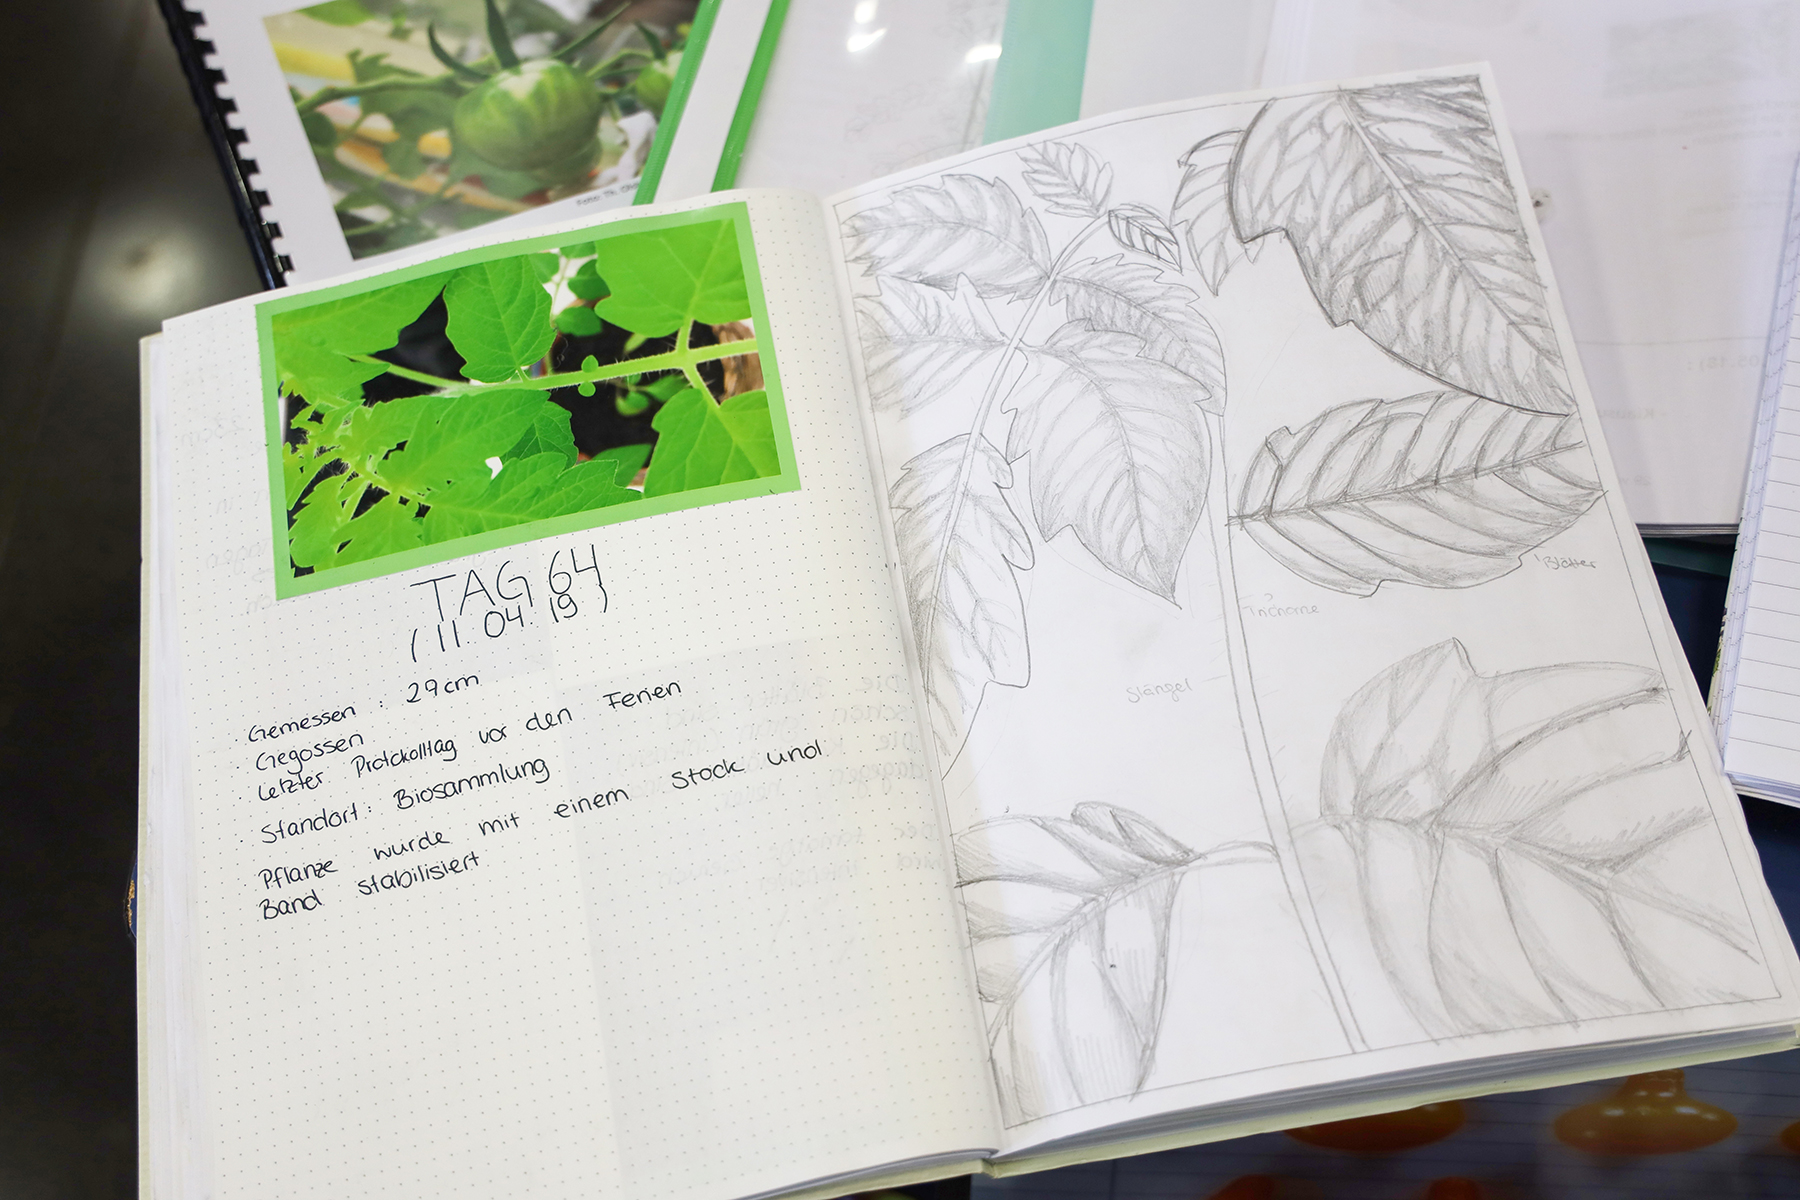 TAG 64
(11.04.19)
Gemessen : 29cm
Gegossen
Letzter Protokolltag vor den Ferien
Standort: Biosammlung
Pflanze wurde mit einem Stock und
Band stabilisiert
Blätter
Trichome
Stängel